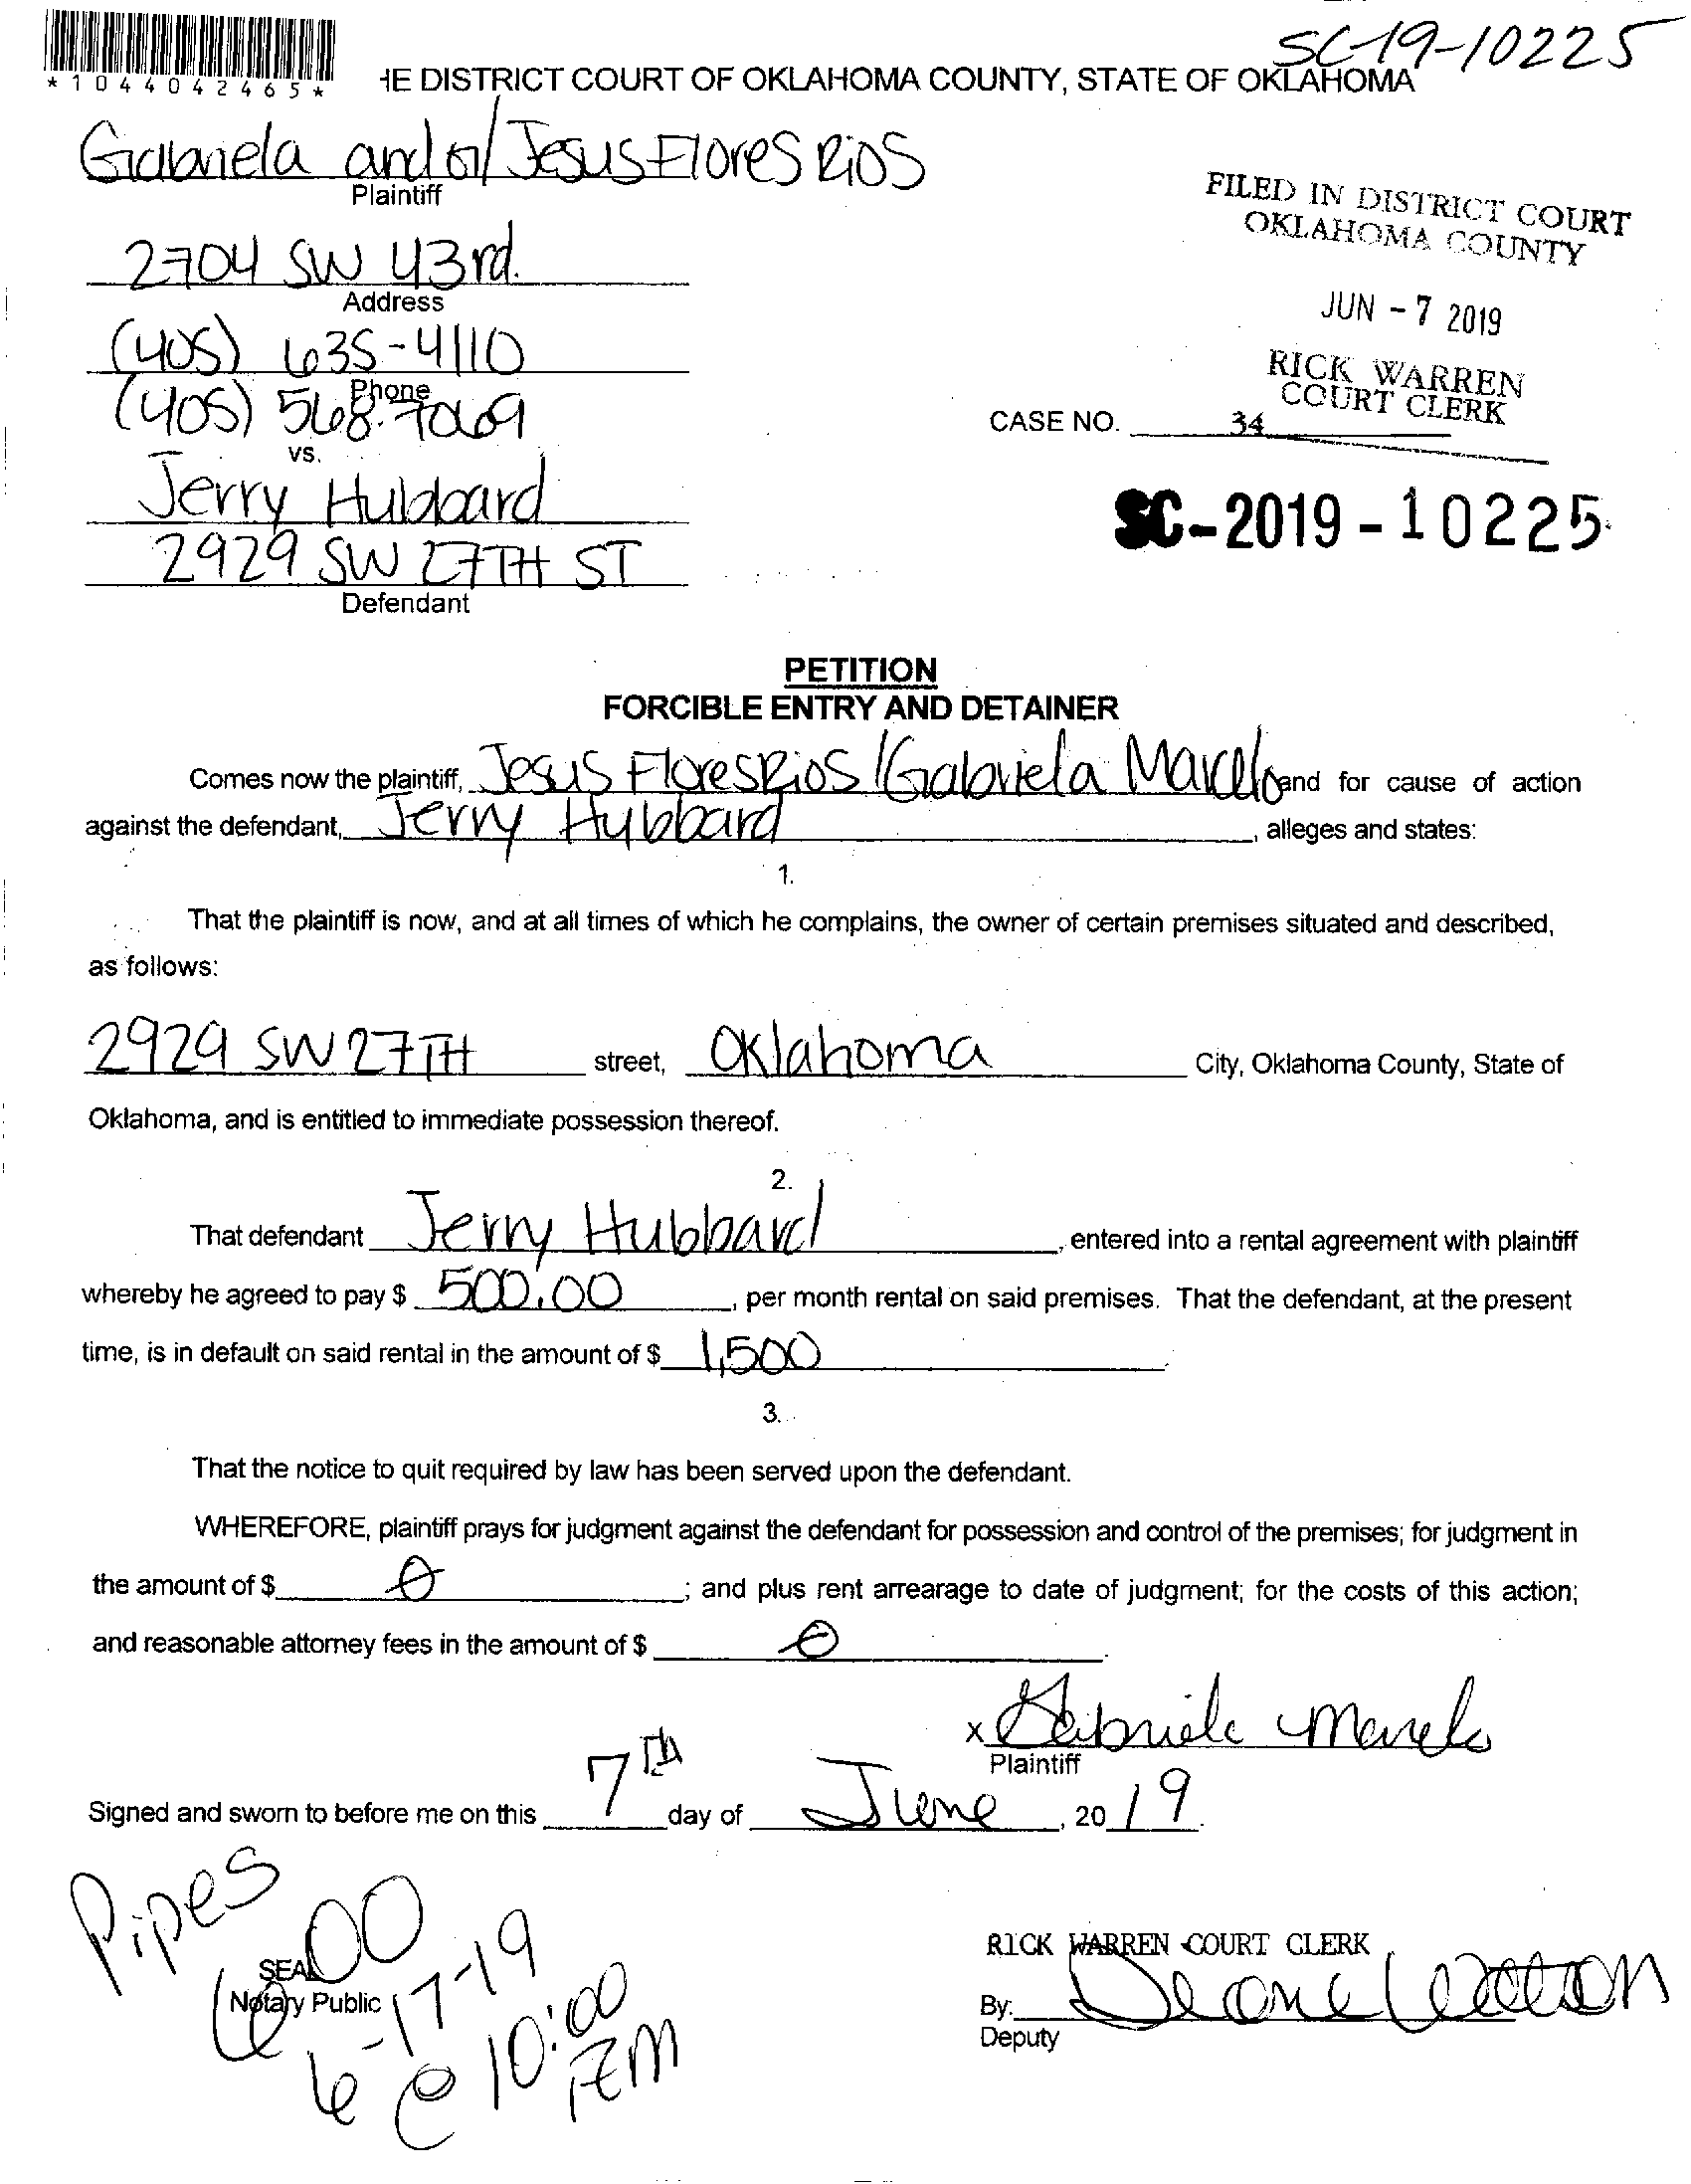 SC-19-10225
*1044042465*
HE DISTRICT COURT OF OKLAHOMA COUNTY, STATE OF OKLAHOMA
Gabriela and or/ Jesus Flores Rios
Plaintiff
2704 SW 43rd.
Address
(405) 635-4110
Phone
(405) 568-7069
vs.
Jerry Hubbard
2929 SW 27TH ST
Defendant
FILED IN DISTRICT COURT
OKLAHOMA COUNTY
JUN - 7 2019
RICK WARREN
COURT CLERK
CASE NO. 34
SC-2019-10225
PETITION
FORCIBLE ENTRY AND DETAINER
Comes now the plaintiff, Jesus Flores Rios / Gabriela Marcelo and for cause of action
against the defendant, Jerry Hubbard, alleges and states:
1.
That the plaintiff is now, and at all times of which he complains, the owner of certain premises situated and described,
as follows:
2929 SW 27TH street, Oklahoma City, Oklahoma County, State of
Oklahoma, and is entitled to immediate possession thereof.
2.
That defendant Jerry Hubbard, entered into a rental agreement with plaintiff
whereby he agreed to pay $ 500.00, per month rental on said premises. That the defendant, at the present
time, is in default on said rental in the amount of $ 1,500.
3.
That the notice to quit required by law has been served upon the defendant.
WHEREFORE, plaintiff prays for judgment against the defendant for possession and control of the premises; for judgment in
the amount of $ 0; and plus rent arrearage to date of judgment; for the costs of this action;
and reasonable attorney fees in the amount of $ 0.
x Gabriela Marcelo
Plaintiff
Signed and sworn to before me on this 7th day of June, 2019.
Pipes
600
SEAL
Notary Public
6-17-19
@ 10:00 AM
RICK WARREN COURT CLERK
By:
Deputy